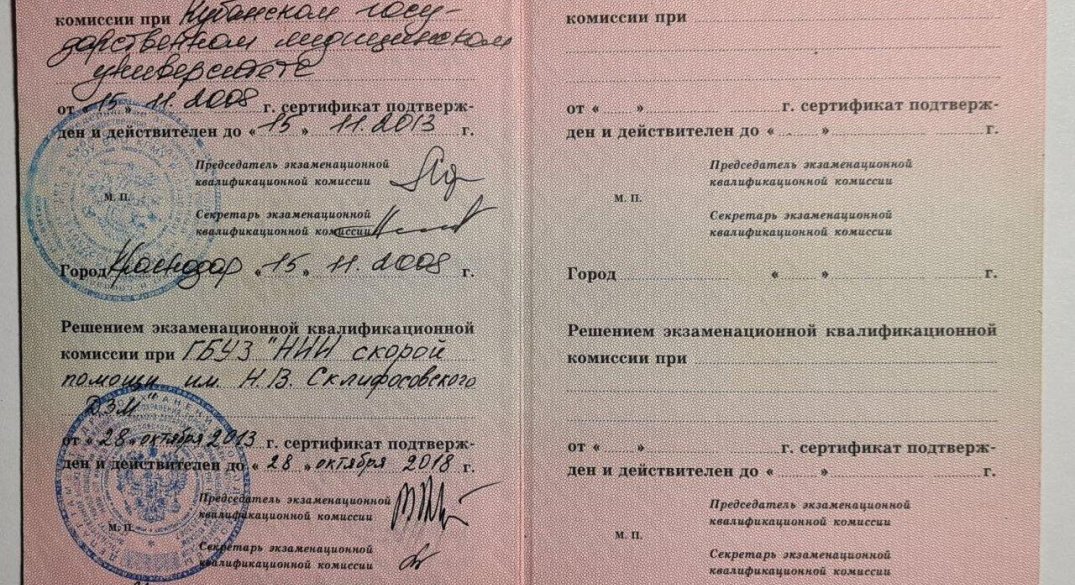 комиссии при Кубанском госу-
дарственном медицинском
университете
от « 15 » 11. 2008 г. сертификат подтверж-
ден и действителен до « 15 » 11. 2013 г.
Председатель экзаменационной
квалификационной комиссии
М. П.
Секретарь экзаменационной
квалификационной комиссии
Город Краснодар « 15 » 11. 2008 г.
Решением экзаменационной квалификационной
комиссии при ГБУЗ "НИИ скорой
помощи им. Н.В. Склифосовского
ДЗМ"
от « 28 » октября 2013 г. сертификат подтверж-
ден и действителен до « 28 » октября 2018 г.
Председатель экзаменационной
квалификационной комиссии
М. П.
Секретарь экзаменационной
квалификационной комиссии
комиссии при
от « » г. сертификат подтверж-
ден и действителен до « » г.
Председатель экзаменационной
квалификационной комиссии
М. П.
Секретарь экзаменационной
квалификационной комиссии
Город « » г.
Решением экзаменационной квалификационной
комиссии при
от « » г. сертификат подтверж-
ден и действителен до « » г.
Председатель экзаменационной
квалификационной комиссии
М. П.
Секретарь экзаменационной
квалификационной комиссии